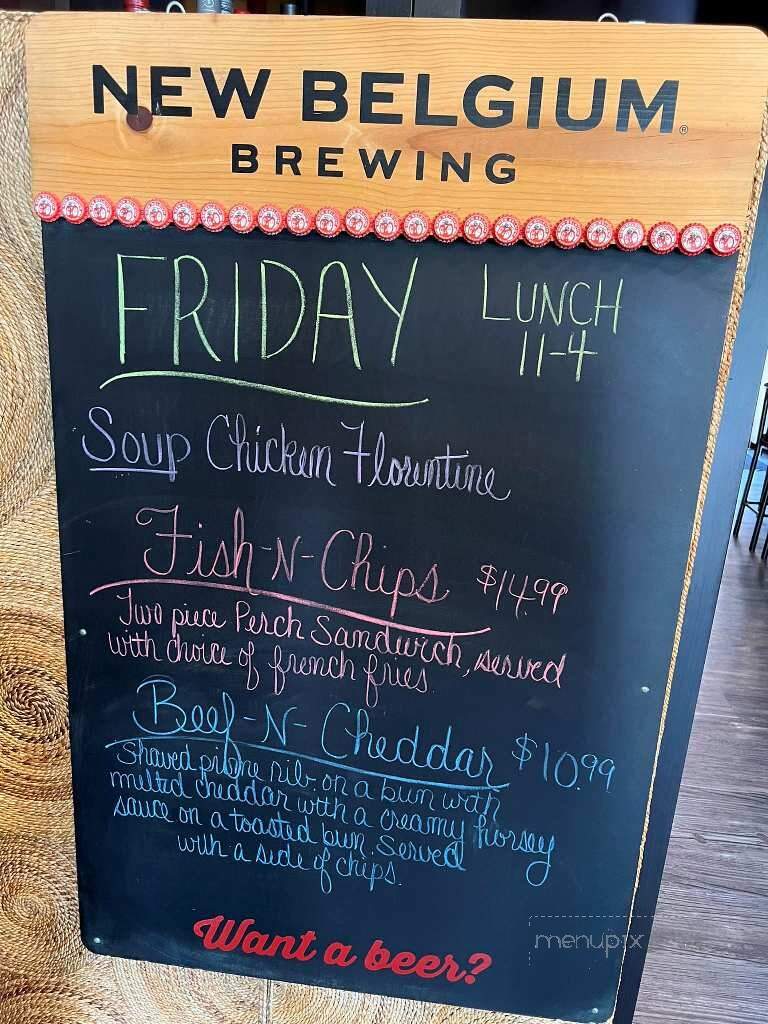 NEW BELGIUM®
BREWING
FRIDAY
LUNCH
11-4
Soup Chicken Florentine
Fish-N-Chips $14.99
Two piece Perch Sandwich, served
with choice of french fries.
Beef-N-Cheddar $10.99
Shaved prime rib on a bun with
melted cheddar with a creamy horsey
sauce on a toasted bun. Served
with a side of chips.
Want a beer?
menupix